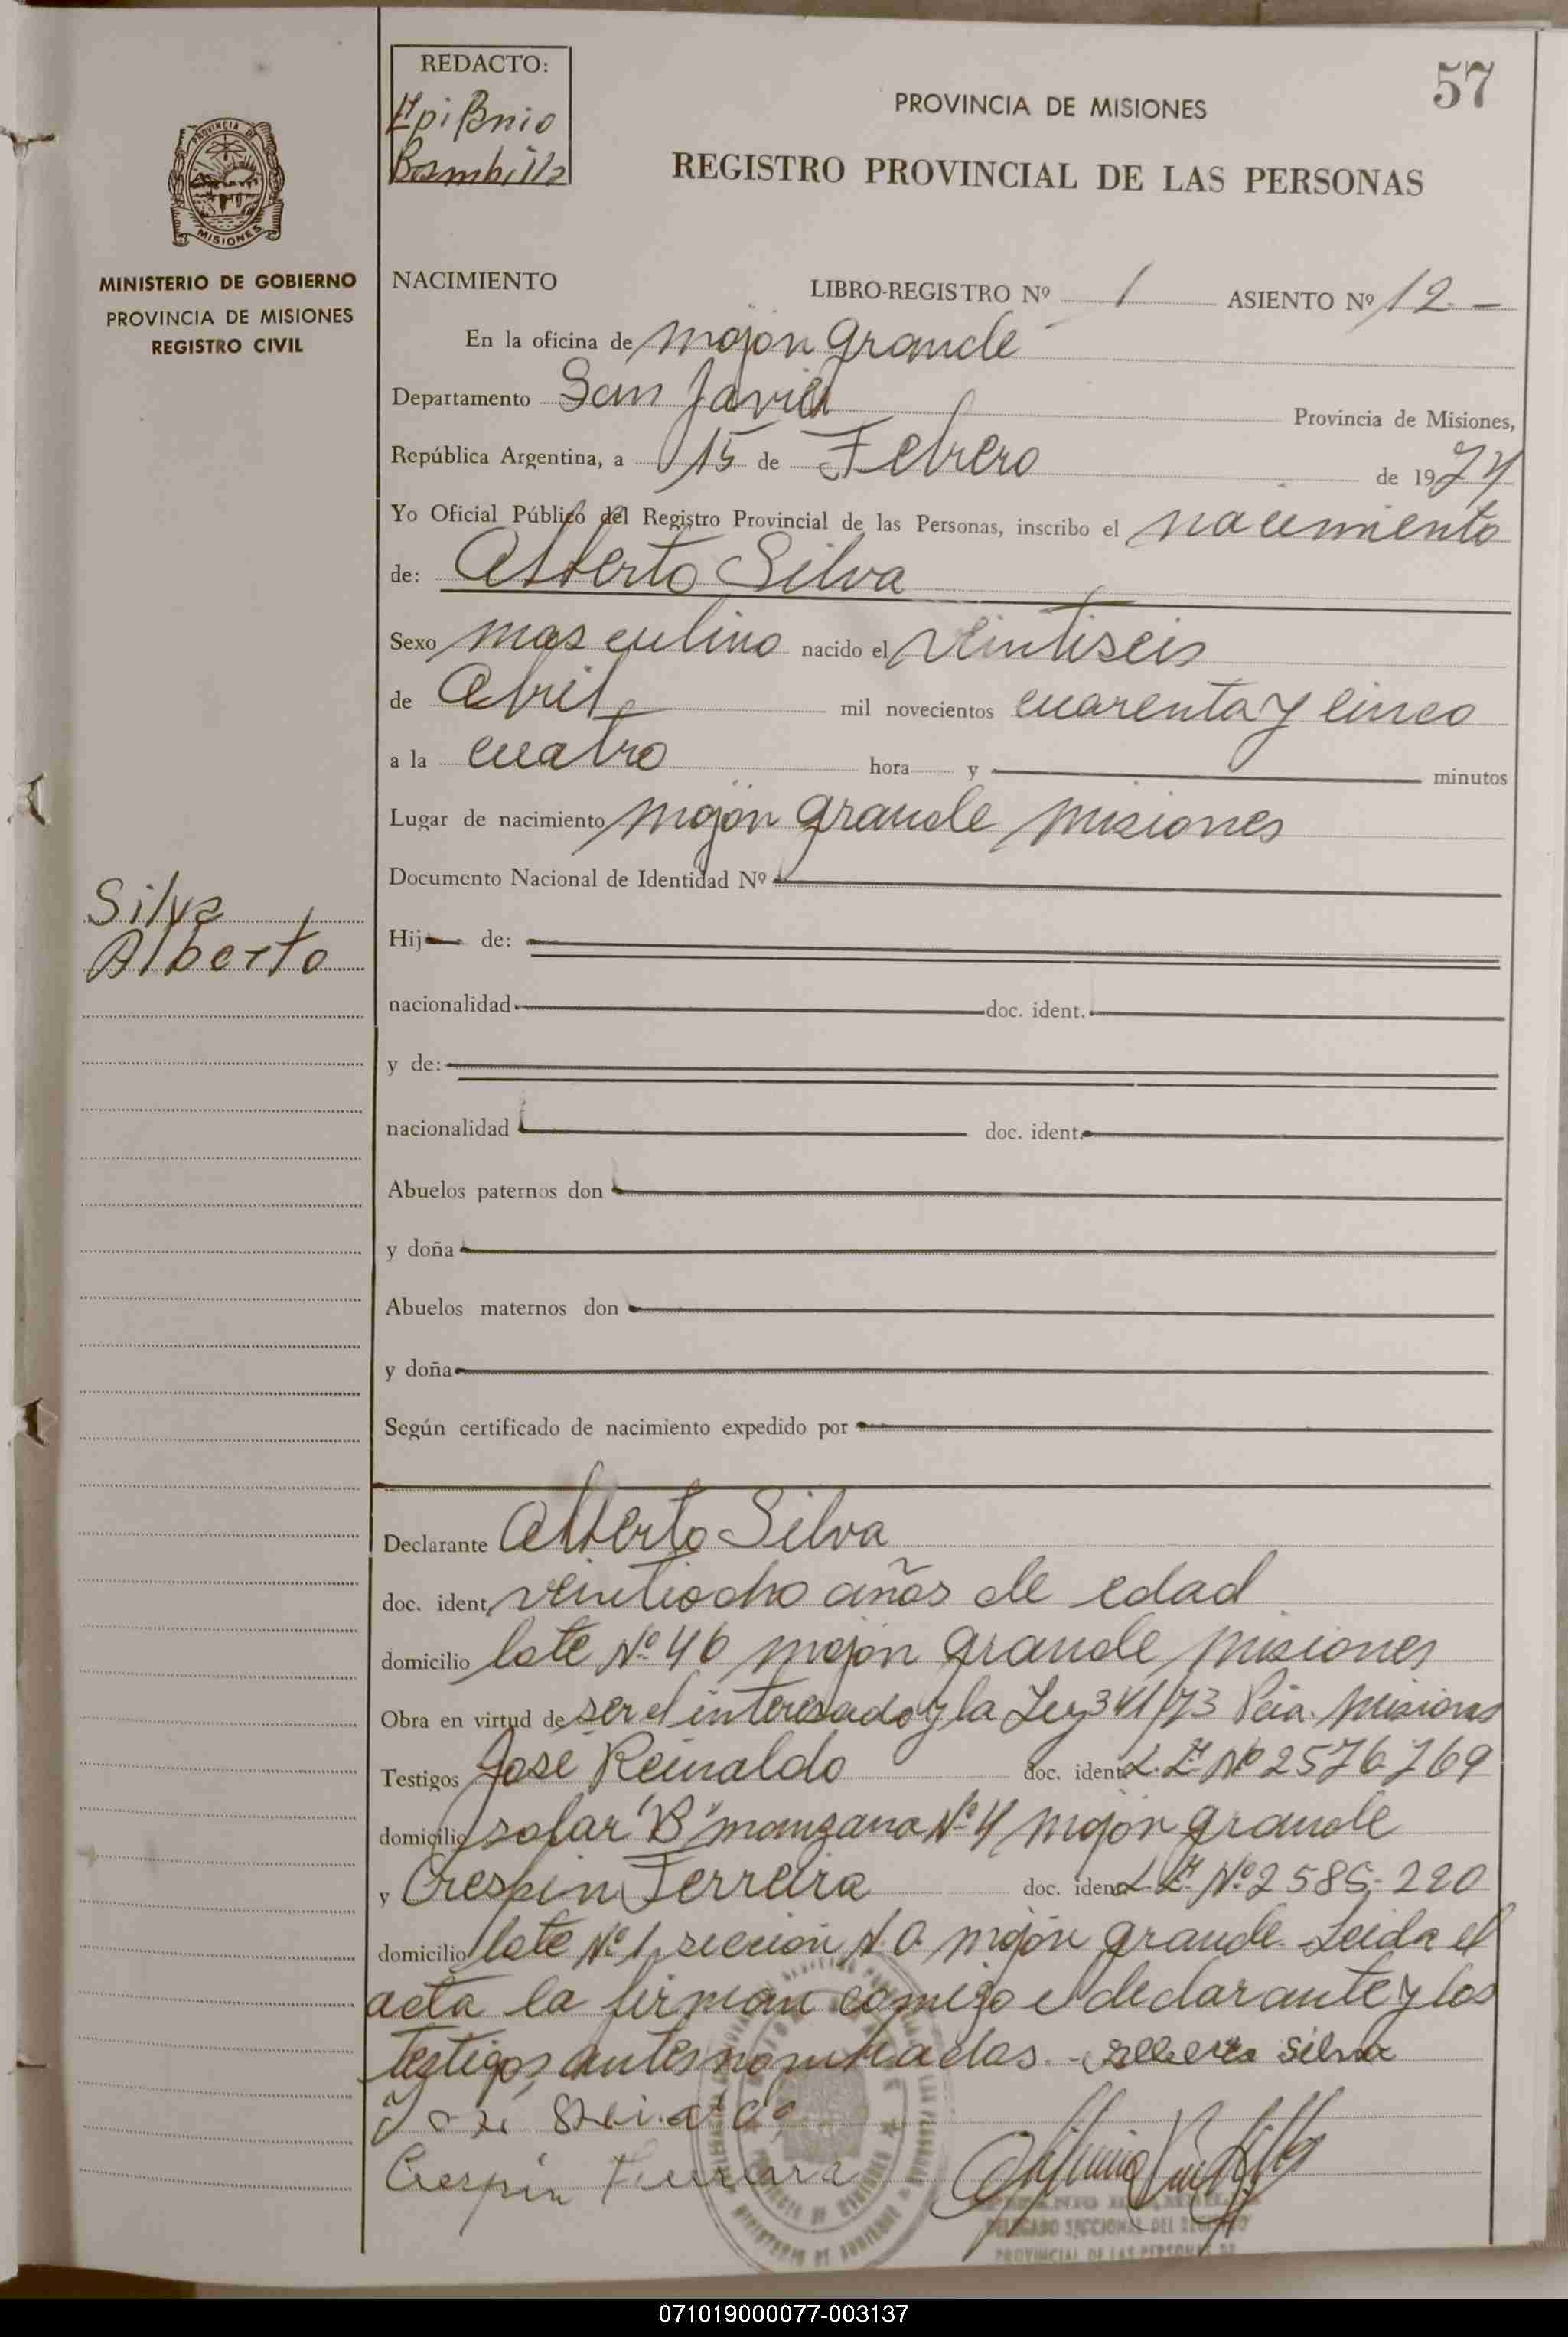 57
REDACTO:
Epifanio
Bambilla
PROVINCIA DE MISIONES
REGISTRO PROVINCIAL DE LAS PERSONAS
PROVINCIA DE
MISIONES
MINISTERIO DE GOBIERNO
PROVINCIA DE MISIONES
REGISTRO CIVIL
NACIMIENTO LIBRO-REGISTRO Nº 1 ASIENTO Nº 12 —
En la oficina de mojón grande
Departamento San Javier Provincia de Misiones,
República Argentina, a 15 de Febrero de 1974
Yo Oficial Público del Registro Provincial de las Personas, inscribo el nacimiento
de: Alberto Silva
Sexo masculino nacido el veintiseis
de Abril mil novecientos cuarenta y cinco
a la cuatro hora y minutos
Lugar de nacimiento mojón grande misiones
Documento Nacional de Identidad Nº
Silva
Alberto
Hij de:
nacionalidad doc. ident.
y de:
nacionalidad doc. ident.
Abuelos paternos don
y doña
Abuelos maternos don
y doña
Según certificado de nacimiento expedido por
Declarante Alberto Silva
doc. ident. veintiocho años de edad
domicilio lote Nº 46 mojón grande misiones
Obra en virtud de ser el interesado y la Ley 341/73 Pcia. misiones
Testigos José Reinaldo doc. ident. L.E Nº 2576.769
domicilio solar "B" manzana Nº 4 mojón grande
y Crespin Ferreira doc. ident. L.E. Nº 2585.220
domicilio lote Nº 1, sección N.O. mojón grande. Leida el
acta la firman comigo el declarante y los
testigos antes nombrados. - silva
Crespin Ferreira
DELEGADO SECCIONAL DEL REGISTRO
PROVINCIAL DE LAS PERSONAS DE
071019000077-003137